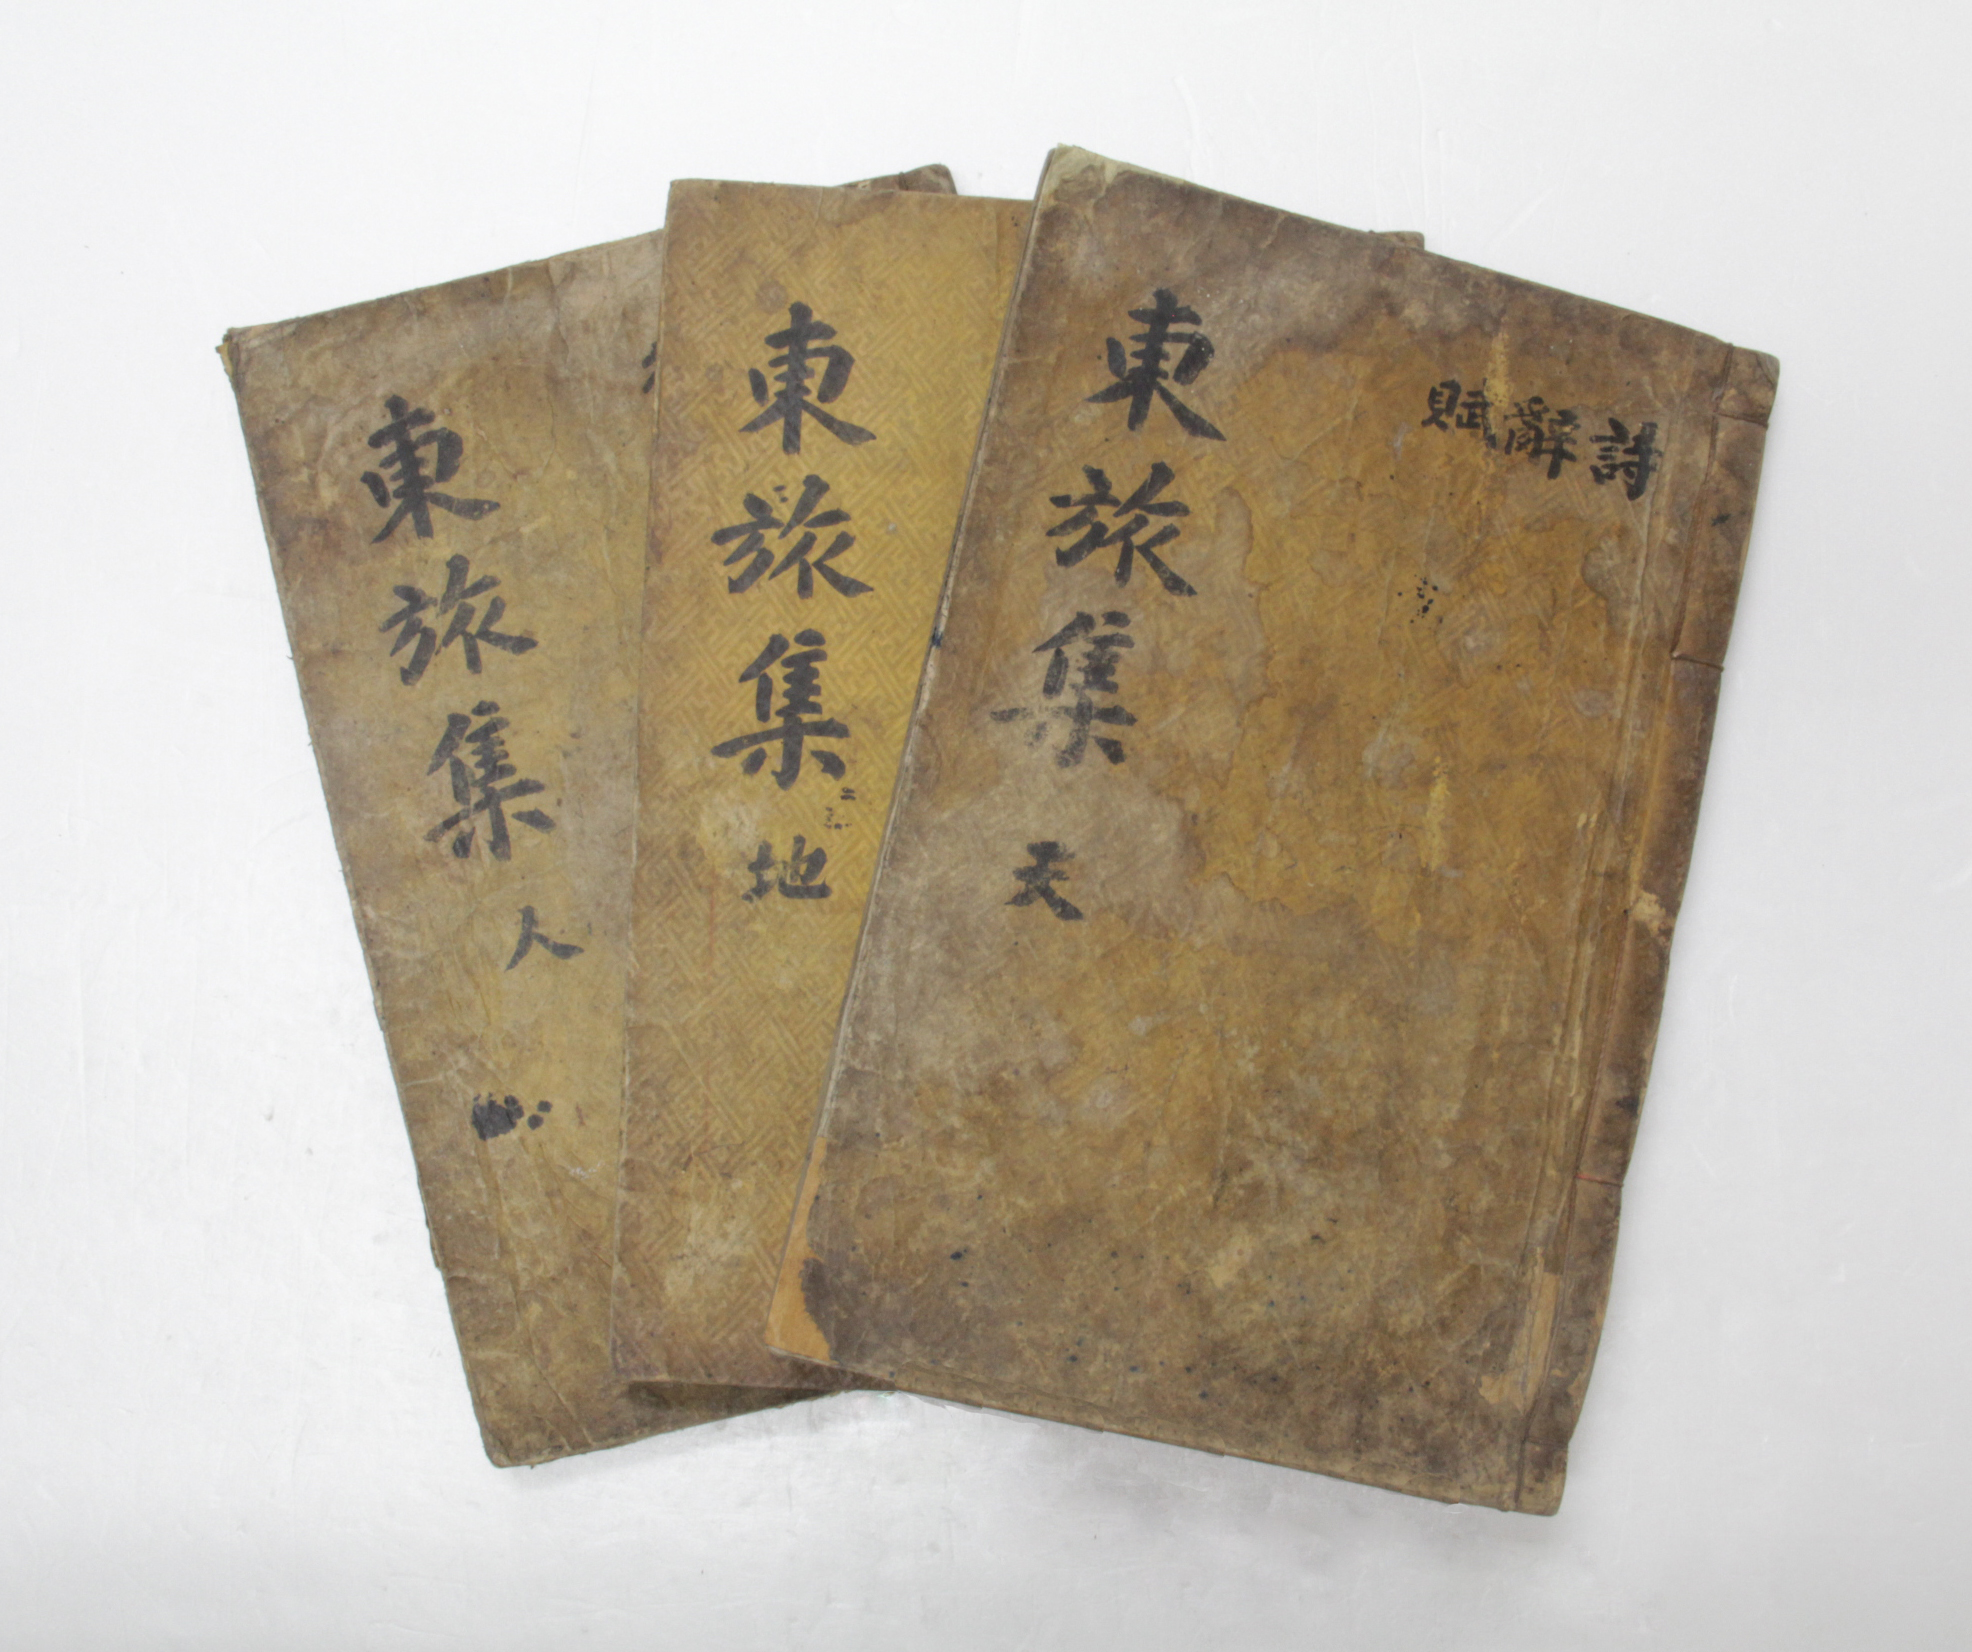 詩辭賦
東旅集 天
東旅集 地
東旅集 人